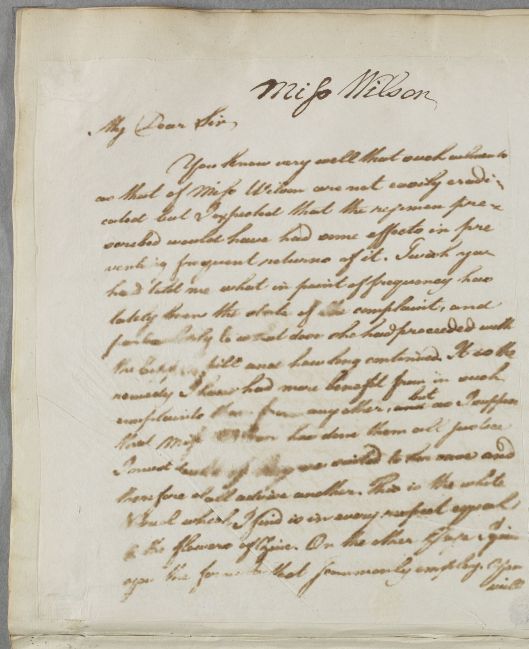 Miss Wilson
My Dear Sir,
You know very well that such ailments
as that of Miss Wilson are not easily eradi-
cated but I expected that the regimen pre-
scribed would have had some effects in pre
venting frequent returns of it. I wish you
had told me what in point of frequency has
lately been the state of the complaint, and
particularly to what dose she had proceeded with
the pill and how long continued. It is the
remedy I have had more benefit from in such
complaints than from any other, but as I suppose
that Miss Wilson has done them all justice
I must suited to her case and
therefore shall advise another. This is the white
Vitriol which I find is in every respect equal
to the flowers of Zinc. On the other I give
you the formula that I commonly employ. You
will